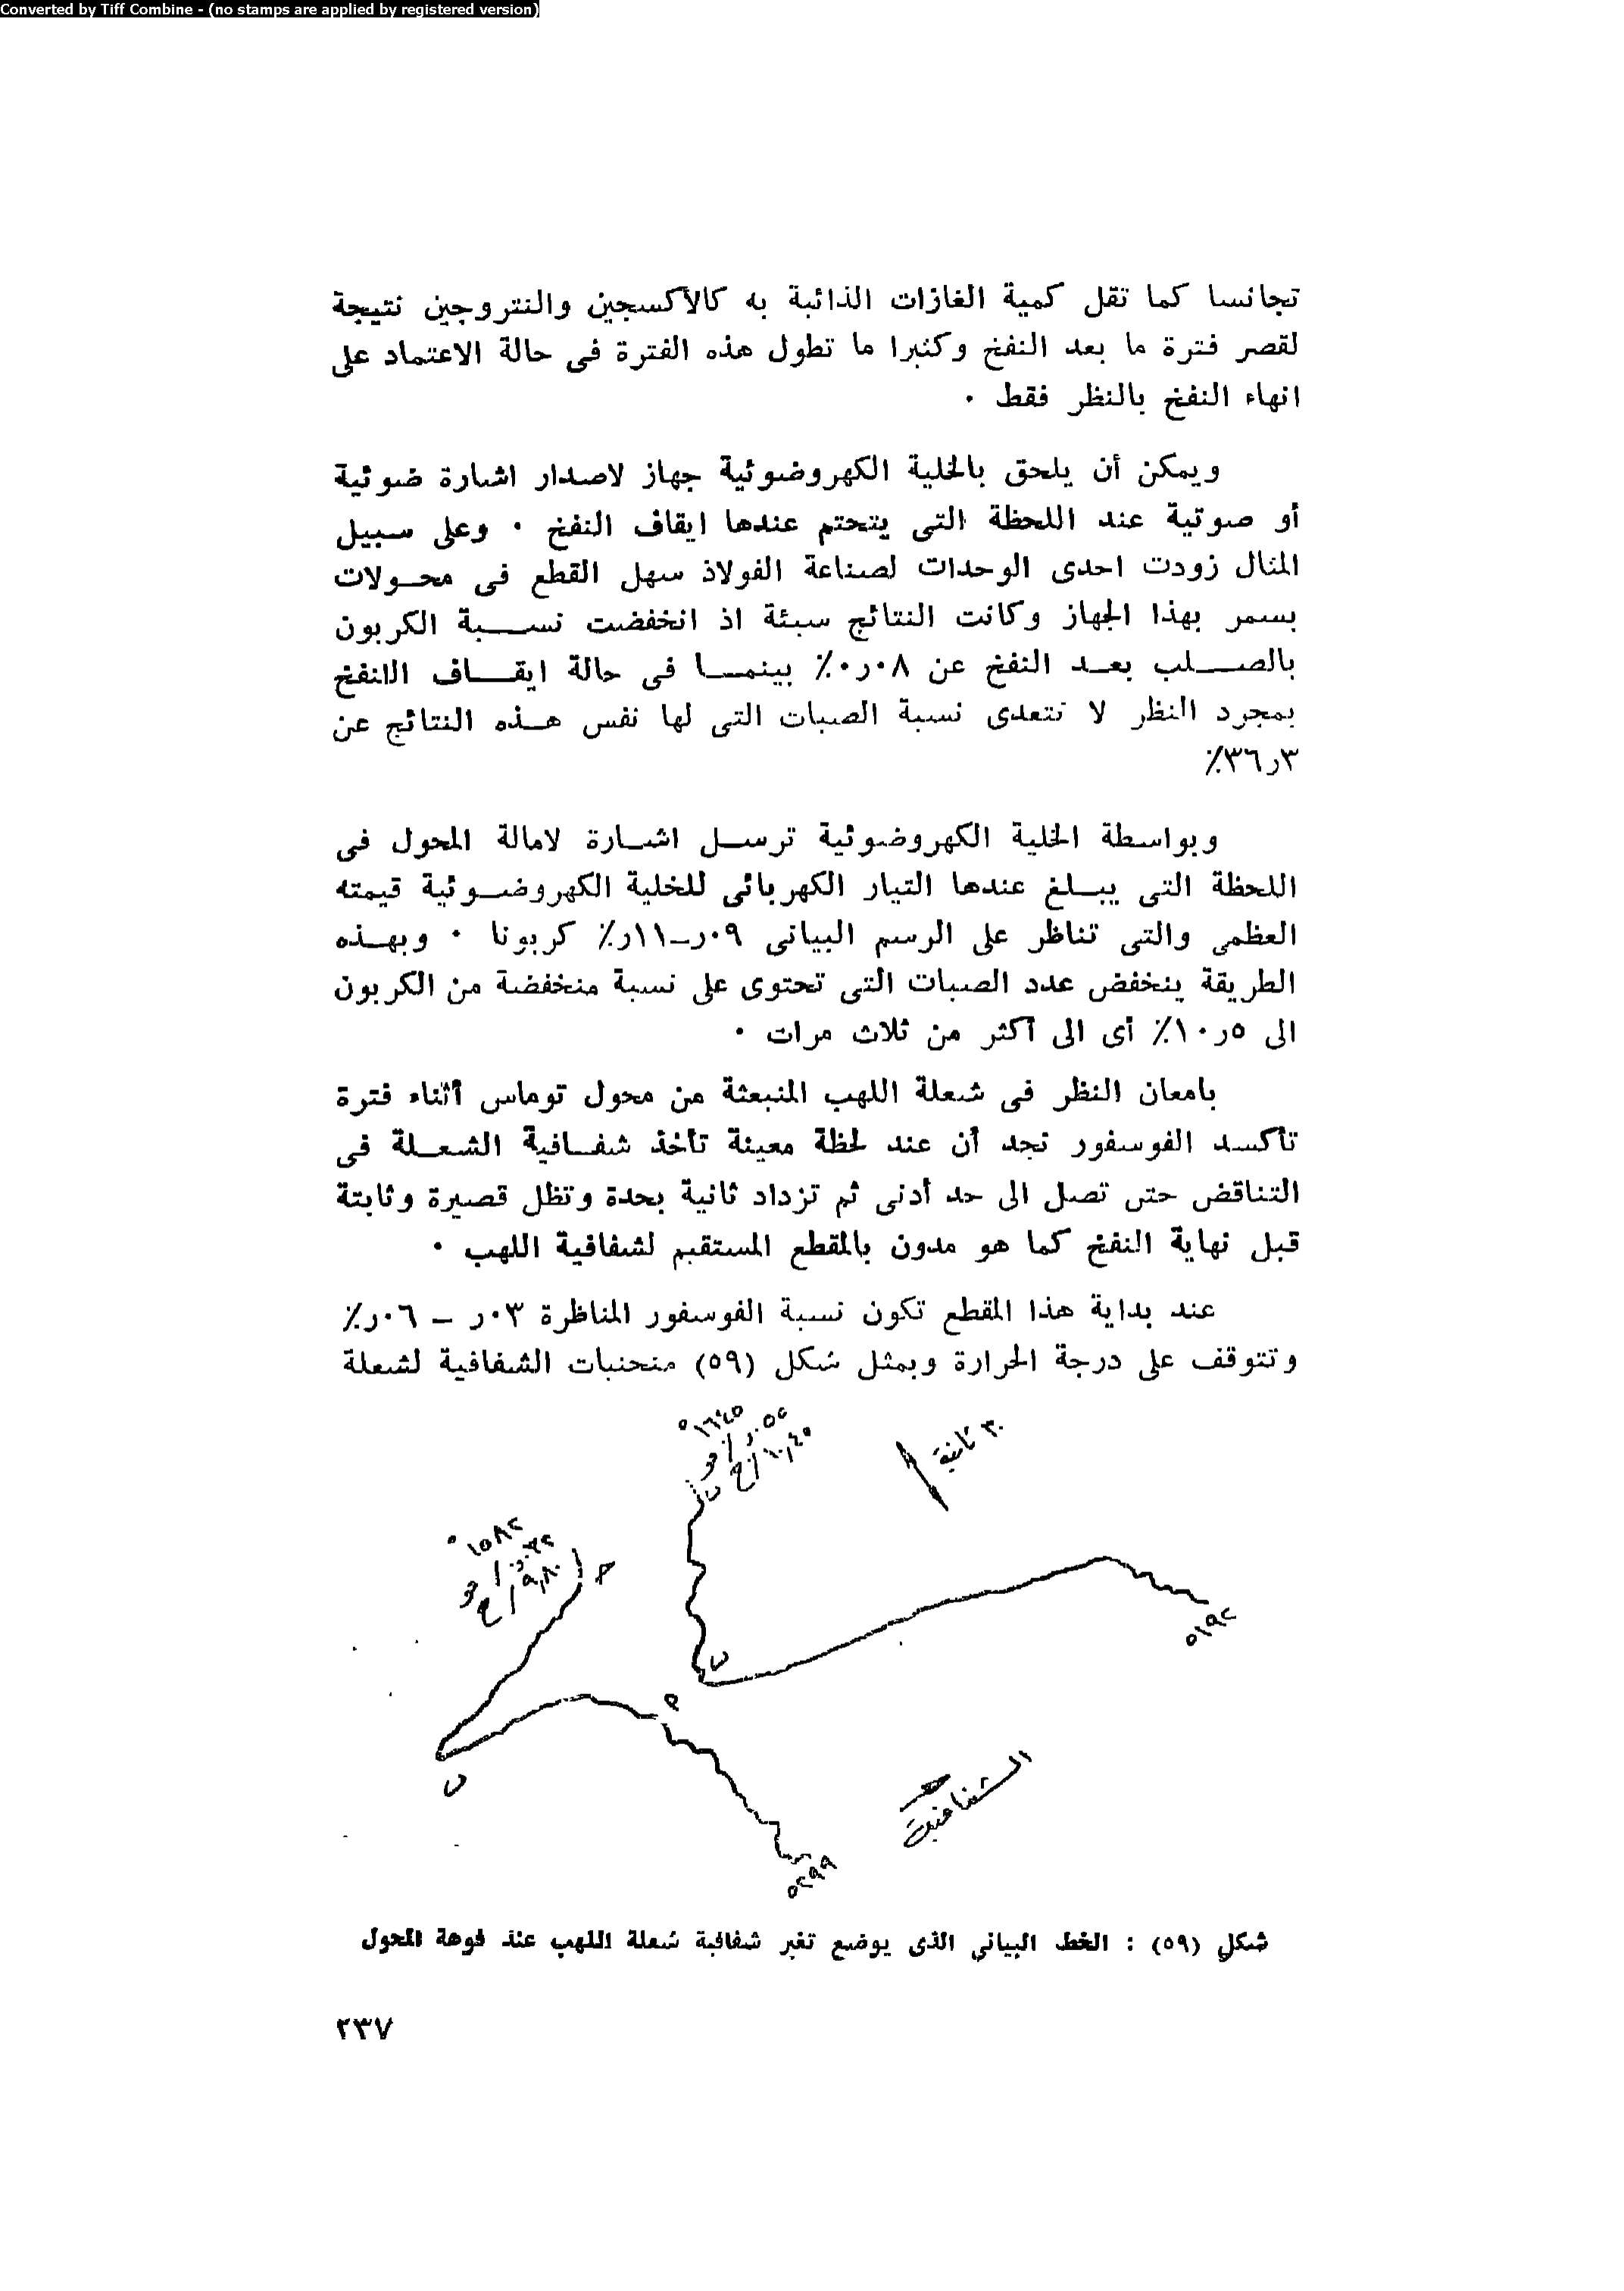 Converted by Tiff Combine - (no stamps are applied by registered version)
تجانسا كما تقل كمية الغازات الذائبة به كالأكسجين والنتروجين نتيجة
لقصر فترة ما بعد النفخ وكثيرا ما تطول هذه الفترة فى حالة الاعتماد على
انهاء النفخ بالنظر فقط ٠
ويمكن أن يلحق بالخلية الكهروضوئية جهاز لاصدار اشارة ضوئية
أو صوتية عند اللحظة التى يتحتم عندها ايقاف النفخ ٠ وعلى سبيل
المثال زودت احدى الوحدات لصناعة الفولاذ سهل القطع فى محولات
بسمر بهذا الجهاز وكانت النتائج سيئة اذ انخفضت نسبة الكربون
بالصلب بعد النفخ عن ٠٨ر٠٪ بينما فى حالة ايقاف النفخ
بمجرد النظر لا تتعدى نسبة الصبات التى لها نفس هذه النتائج عن
٣ر٣٦٪
وبواسطة الخلية الكهروضوئية ترسل اشارة لامالة المحول فى
اللحظة التى يبلغ عندها التيار الكهربائى للخلية الكهروضوئية قيمته
العظمى والتى تناظر على الرسم البيانى ٠٩ر–١١ر٪ كربونا ٠ وبهذه
الطريقة ينخفض عدد الصبات التى تحتوى على نسبة منخفضة من الكربون
الى ٥ر١٠٪ أى الى أكثر من ثلاث مرات ٠
بامعان النظر فى شعلة اللهب المنبعثة من محول توماس أثناء فترة
تأكسد الفوسفور نجد أن عند لحظة معينة تأخذ شفافية الشعلة فى
التناقض حتى تصل الى حد أدنى ثم تزداد ثانية بحدة وتظل قصيرة وثابتة
قبل نهاية النفخ كما هو مدون بالمقطع المستقيم لشفافية اللهب ٠
عند بداية هذا المقطع تكون نسبة الفوسفور المناظرة ٠٣ر – ٠٦ر٪
وتتوقف على درجة الحرارة ويمثل شكل (٥٩) منحنيات الشفافية لشعلة
١٦٤٥°
٣٠ ثانية
١٥٨٢°
٩,٨٠/ح
٥١٩٢
ب
ب
الشفافية
٥٢٩٩
شكل (٥٩) : الخط البيانى الذى يوضح تغير شفافية شعلة اللهب عند فوهة المحول
٢٣٧